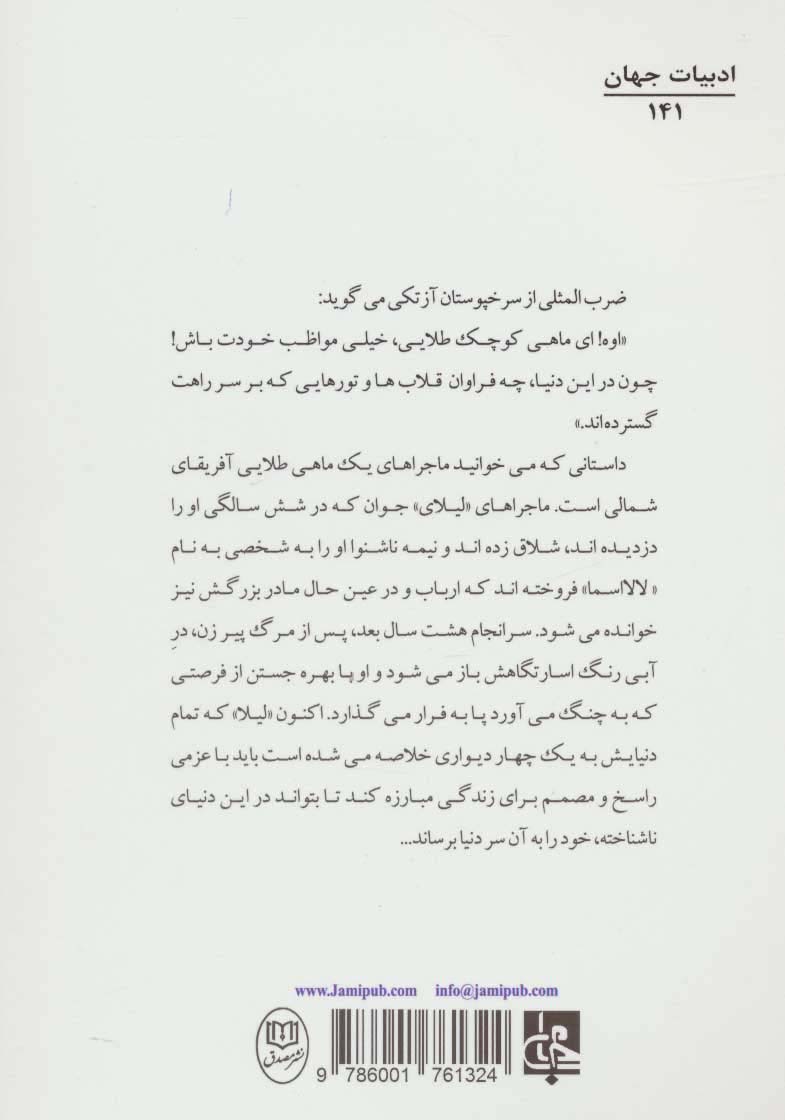 ادبیات جهان
۱۴۱
ضرب المثلی از سرخپوستان آزتکی می گوید:
«اوه! ای ماهی کوچک طلایی، خیلی مواظب خودت باش!
چون در این دنیا، چه فراوان قلاب ها و تورهایی که بر سر راهت
گسترده‌اند.»
داستانی که می خوانید ماجراهای یک ماهی طلایی آفریقای
شمالی است. ماجراهای «لیلای» جوان که در شش سالگی او را
دزدیده اند، شلاق زده اند و نیمه ناشنوا او را به شخصی به نام
«لالااسما» فروخته اند که ارباب و در عین حال مادر بزرگش نیز
خوانده می شود. سرانجام هشت سال بعد، پس از مرگ پیر زن، درِ
آبی رنگ اسارتگاهش باز می شود و او با بهره جستن از فرصتی
که به چنگ می آورد پا به فرار می گذارد. اکنون «لیلا» که تمام
دنیایش به یک چهار دیواری خلاصه می شده است باید با عزمی
راسخ و مصمم برای زندگی مبارزه کند تا بتواند در این دنیای
ناشناخته، خود را به آن سر دنیا برساند...
www.Jamipub.com info@jamipub.com
نشر مصدق
جامی
9 786001 761324